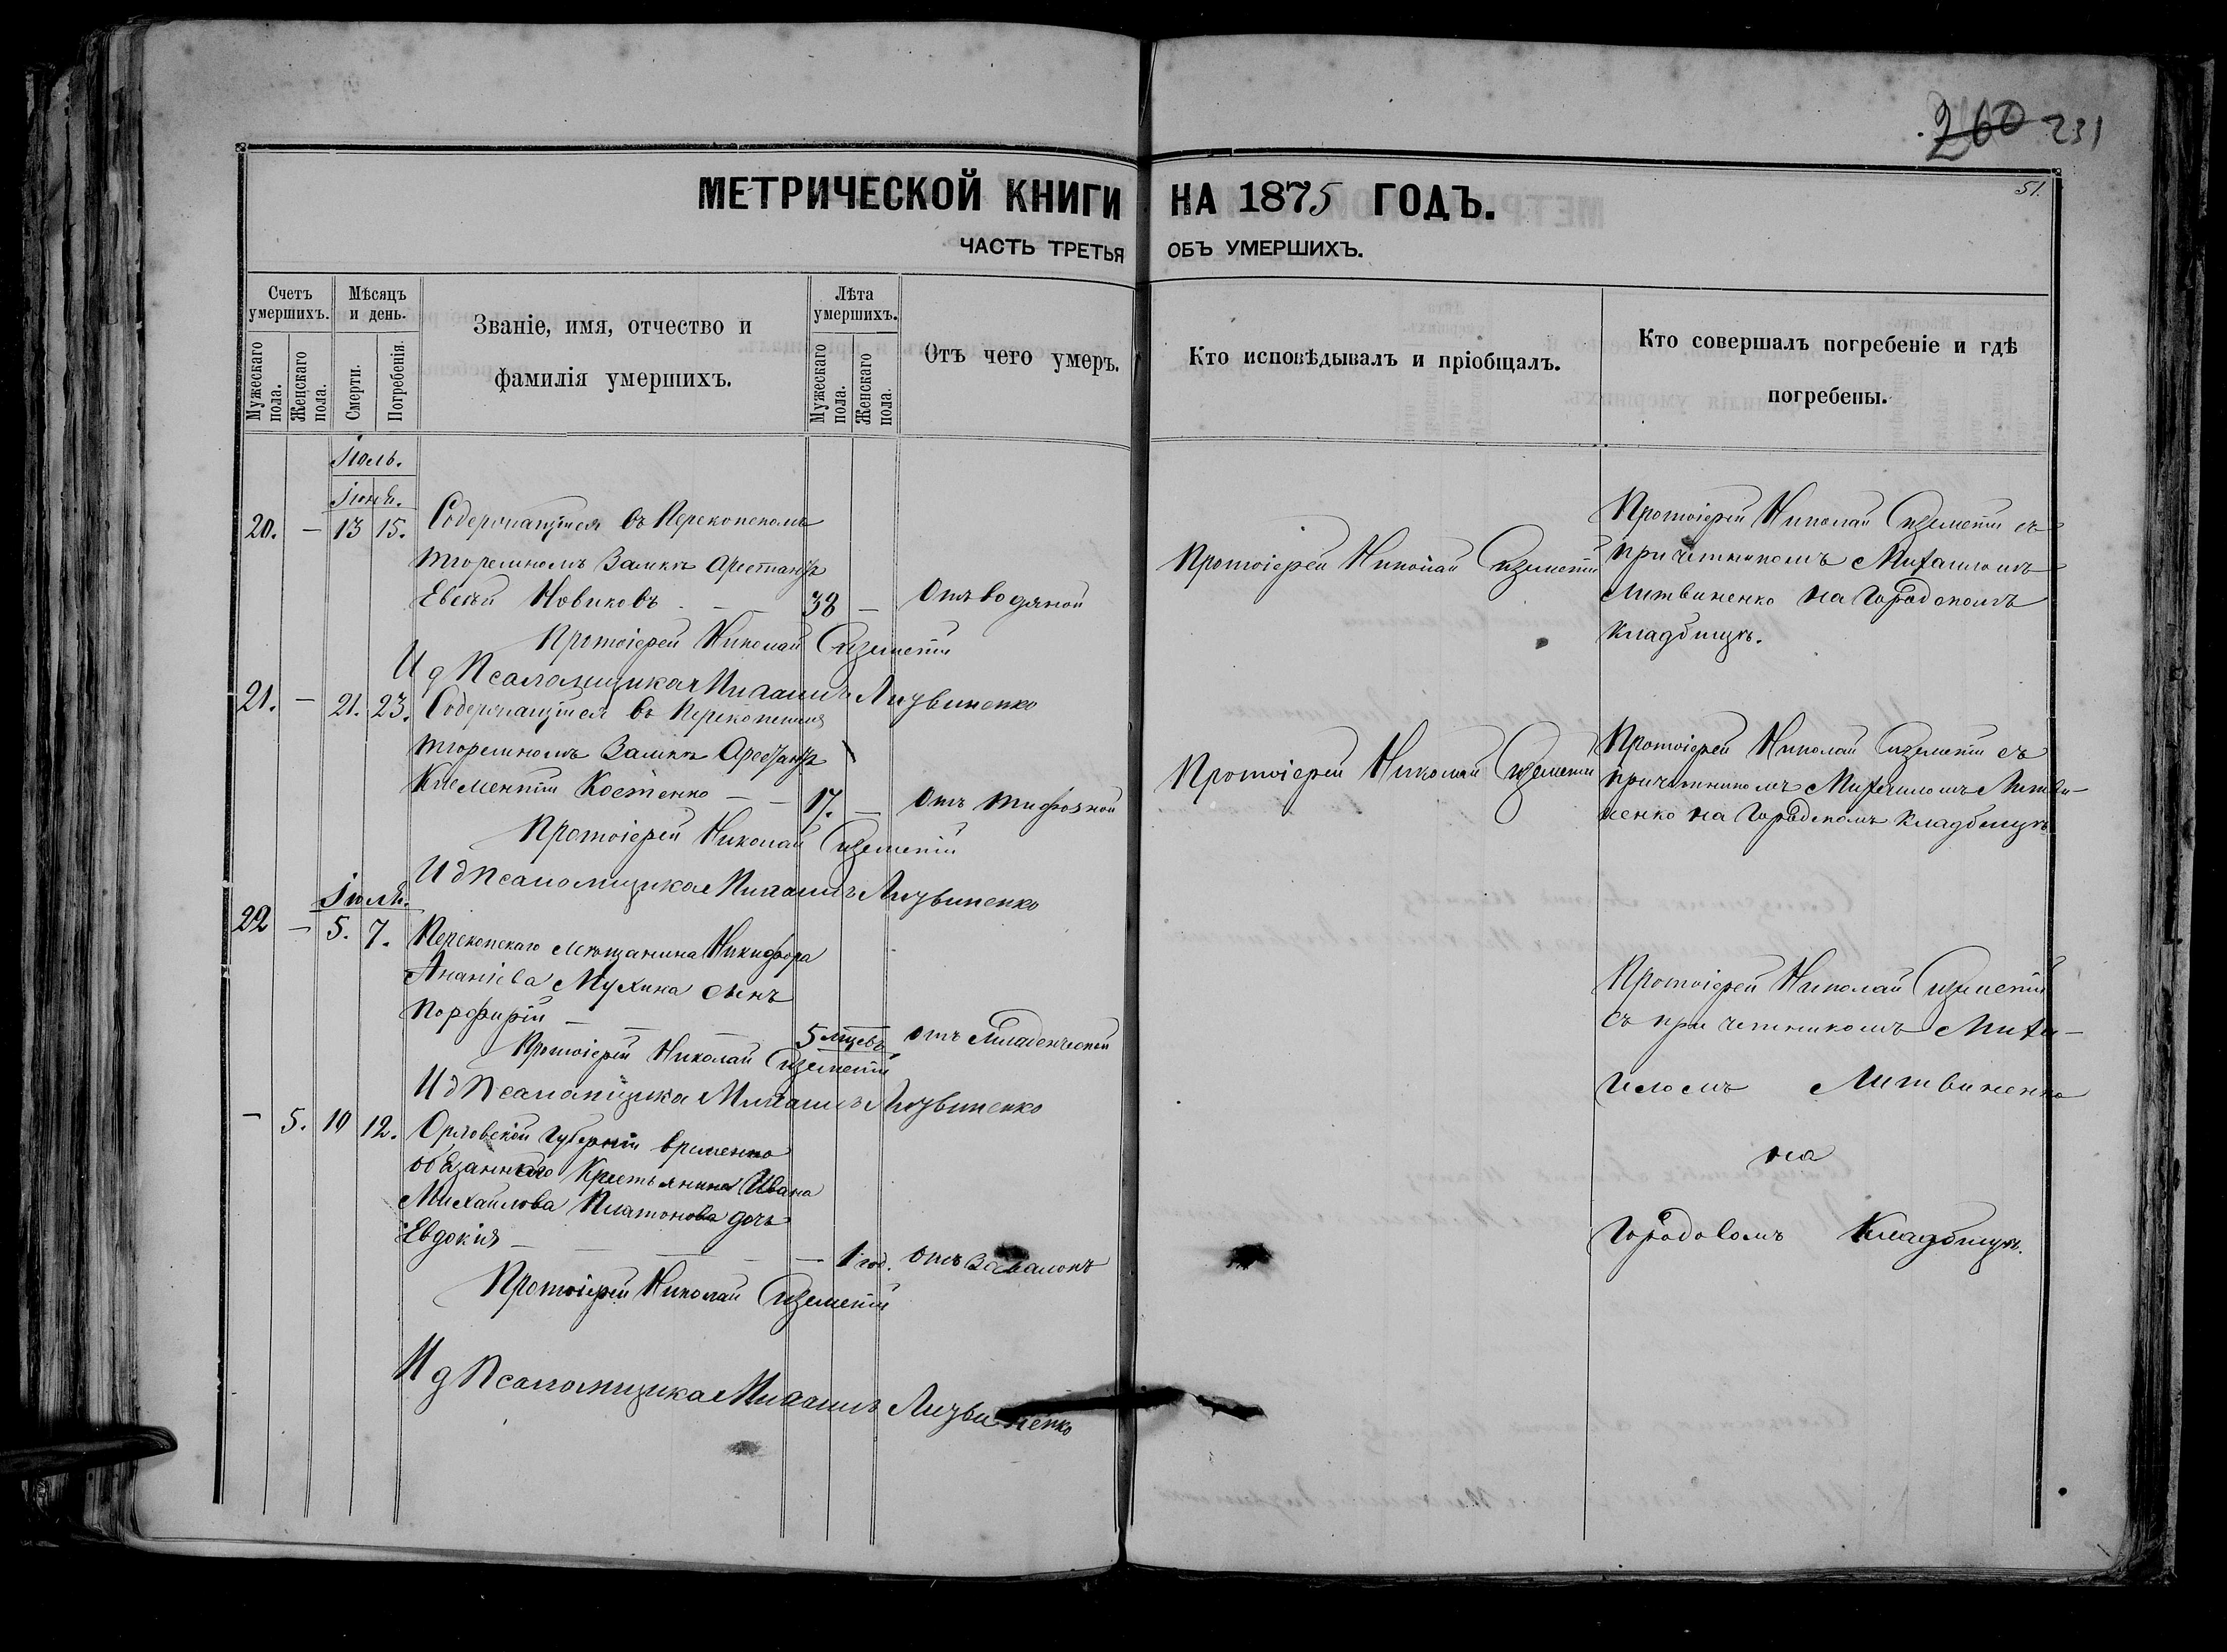 260 231
51.
МЕТРИЧЕСКОЙ КНИГИ НА 1875 ГОДЪ.
ЧАСТЬ ТРЕТЬЯ ОБЪ УМЕРШИХЪ.
Счетъ умершихъ.
Мужескаго пола.
Женскаго пола.
Мѣсяцъ и день.
Смерти.
Погребенія.
Званіе, имя, отчество и
фамилія умершихъ.
Лѣта умершихъ.
Мужескаго пола.
Женскаго пола.
Отъ чего умеръ.
Кто исповѣдывалъ и пріобщалъ.
Кто совершалъ погребеніе и гдѣ
погребены.
Іюль.
Іюня.
20. — 13 15. Содержащійся въ Перекопскомъ
тюремномъ Замкѣ Арестантъ
Евсѣй Новиковъ — — 38 — Отъ водяной
Протоіерей Николай
Протоіерей Николай съ
причетникомъ Михаиломъ
Литвиненко на Городскомъ
кладбищѣ.
Протоіерей Николай
И д Псаломщика Михаилъ Литвиненко
21. — 21. 23. Содержащійся въ Перекопскомъ
тюремномъ Замкѣ Арестантъ
Климентій Костенко — — 17. — Отъ тифозной
Протоіерей Николай
Протоіерей Николай съ
причетникомъ Михаиломъ Литви-
ненко на Городскомъ кладбищѣ
Протоіерей Николай
И д Псаломщика Михаилъ Литвиненко
Іюля.
22 — 5. 7. Перекопскаго мѣщанина Никифора
Ананіева Мухина сынъ
Порфирій — — — 5 мѣсцевъ отъ Младенческой
Протоіерей Николай
И д Псаломщика Михаилъ Литвиненко
— 5. 10 12. Орловской Губерніи временно
обязаннаго Крестьянина Ивана
Михайлова Платонова дочь
Евдокія — — — — 1 год. отъ
Протоіерей Николай
съ причетникомъ Миха-
иломъ Литвиненко
на
Городовомъ Кладбищѣ.
Протоіерей Николай
И д Псаломщика Михаилъ Литвиненко